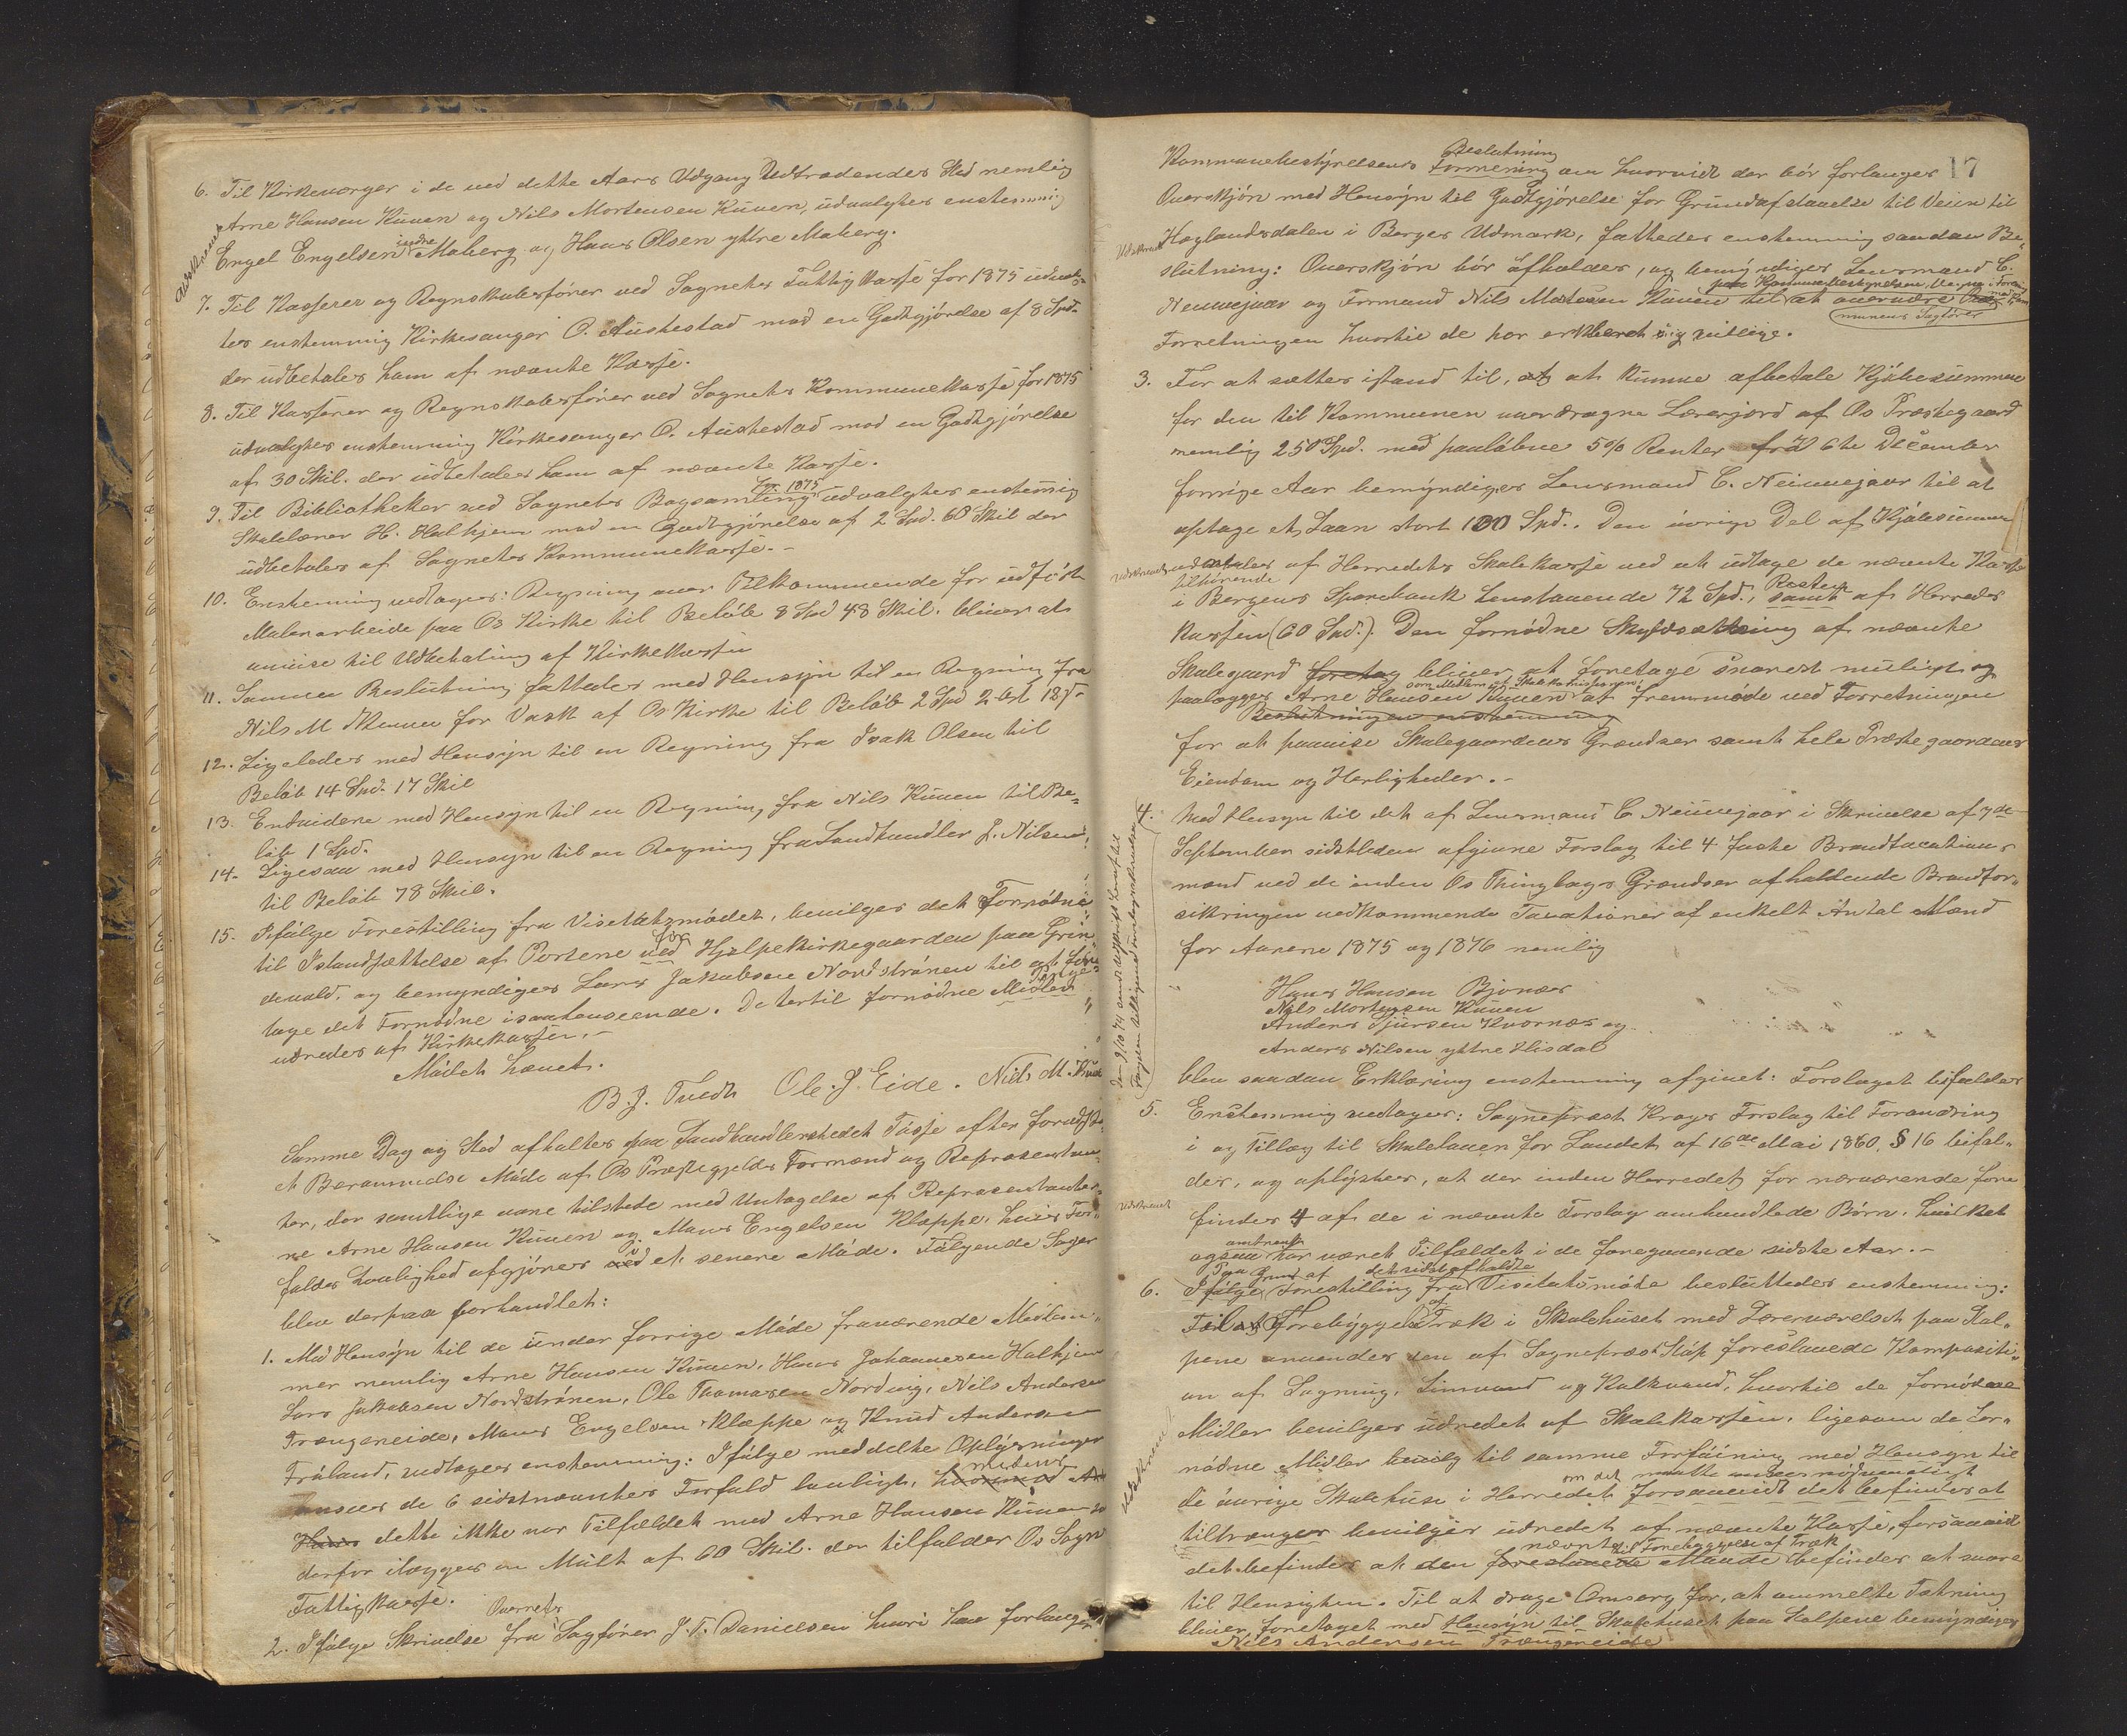 6. Til Kirkeværger i de ved dette Aars Udgang Udtrædendes Sted nemlig
Arne Hansen Kuven og Nils Mortensen Kuven, udvalgtes enstemmig
Engel Engelsen indre Moberg og Hans Olsen yttre Moberg.
Udskrevet
7. Til Kasserer og Regnskabsfører ved Sognets Fattigkasse for 1875 udvalg-
tes enstemmig Kirkesanger O. Austestad mod en Godtgjørelse af 8 Spd.
der udbetales ham af nævnte Kasse.
8. Til Kasserer og Regnskabsfører ved Sognets Kommunekasse for 1875
udvalgtes enstemmig Kirkesanger O. Austestad mod en Godtgjørelse
af 30 Skil. der udbetales ham af nævnte Kasse.
9. Til Bibliotheker ved Sognets Bogsamling for 1875 udvalgtes enstemmig
Skolelærer H. Halhjem mod en Godtgjørelse af 2 Spd. 60 Skil der
udbetales af Sognets Kommunekasse.-
10. Enstemmig vedtages: Regning over Vedkommende for udført
Malerarbeide paa Os Kirke til Beløb 8 Spd 48 Skil. bliver at
anvise til Udbetaling af Kirkekassen
11. Samme Beslutning fattedes med Hensyn til en Regning fra
Nils M Kuven for Vask af Os Kirke til Beløb 2 Spd 2 ort 18 s-
12. Ligeledes med Hensyn til en Regning fra Isak Olsen til
Beløb 14 Spd. 17 Skil
13. Endvidere med Hensyn til en Regning fra Nils Kuven til Be-
løb 1 Spd.
14. Ligesaa med Hensyn til en Regning fra Landhandler J. Nilsen
til Beløb 78 Skil.
15. Ifølge Forestilling fra Visitatsmødet, bevilges det Fornødne
til Istandsættelse af Portene ved for Hjælpekirkegaarden paa Grin-
devold, og bemyndiges Lars Jakobsen Nordstrønen til at fore-
tage det Fornødne i saahenseende. De hertil fornødne Midler Penge
udredes af Kirkekassen.-
Mødet hævet.
B. J. Tvedt Ole. J. Eide. Niels M. Kuven
Samme Dag og Sted afholtes paa Landhandlerstedet Tøsse efter forudsk-
et Berammelse Møde af Os Præstegjelds Formænd og Repræsentan-
ter, der samtlige vare tilstede med Undtagelse af Repræsentanter-
ne Arne Hansen Kuven og Mons Engelsen Kloppe, hvis For-
falds Lovlighed afgjøres ved i et senere Møde. Følgende Sager
blev derpaa forhandlet:
1. Med Hensyn til de under forrige Møde fraværende Medlem-
mer nemlig Arne Hansen Kuven, Hans Johannesen Halhjem
Lars Jakobsen Nordstrønen, Ole Thomasen Nordvig, Nils Andersen
Trængereide, Mons Engelsen Kloppe og Knud Andersen
Frøland, vedtages enstemmig: Ifølge meddelte Oplysninger
ansees de 6 sidstnævntes Forfald lovligt, hvorimod medens Arne
Hans dette ikke var Tilfældet med Arne Hansen Kuven som
derfor ilægges en Mult af 60 Skil. der tilfalder Os Sogns
Fattigkasse.
2. Ifølge Skrivelse fra Overrets Sagfører J. T. Danielsen hvori han forlanger
17
Kommunebestyrelsens Formening Beslutning om hvorvidt der bør forlanges
Overskjøn med Hensyn til Godtgjørelse for Grundafstaaelse til Veien til
Udskrevet
Haglandsdalen i Berges Udmark, fattedes enstemmig saadan Be-
slutning: Overskjøn bør afholdes, og bemyndiges Lensmand C.
Neumejaar og Formand Nils Mortensen Kuven til paa Kommunebestyrelsens Vegne at overvære
munens Sagfører
Forretningen hvortil de har erklæret sig villige.
3. For at sættes istand til, at at kunne afbetale Kjøbesummen
for den til Kommunen overdragne Lærerjord af Os Præstegaard
nemlig 250 Spd. med paaløbne 5% Renter fra 6te December
forrige Aar bemyndiges Lensmand C. Neumejaar til at
optage et Laan stort 100 Spd.. Den øvrige Del af Kjøbesummen
Udskrevet
udbetales af Herredets Skolekasse ved at udtage de nævnte Kasse
tilhørende
i Bergens Sparebank henstaaende 72 Spd., samt Resten af Herreds
kassen (60 Spd.). Den fornødne Skyldsætning af nævnte
Skolegaard foretag bliver at foretage snarest muligt og
paalægges Arne Hansen Kuven som Medlem af Skolekommissionen at fremmøde ved Forretningen
Beslutningen enstemmig
for at paavise Skolegaardens Grændser samt hele Præstegaardens
Eiendom og Herligheder.-
4. Med Hensyn til det af Lensmand C Neumejaar i Skrivelse af 7de
September sidstleden afgivne Forslag til 4 faste Brandtaxations-
mænd ved de inden Os Thinglags Grændser afholdende Brandfor-
sikringen vedkommende Taxationer af enkelt Antal Mænd
for Aarene 1875 og 1876 nemlig
Hans Hansen Bjønnes
Nils Mortensen Kuven
Anders Sjursen Kvornes og
Anders Nilsen yttre Hisdal
blev saadan Erklæring enstemmig afgivet: Forslaget bifaldes
5. Enstemmig vedtages: Sognepræst Krogs Forslag til Forandring
i og Tillæg til Skoleloven for Landet af 16de Mai 1860, § 16 bifal-
des, og oplyses, at der inden Herredet for nærværende fore
Udskrevet
findes 4 af de i nævnte Forslag omhandlede Børn, hvilket
ogsaa omtrent har været Tilfældet i de foregaaende sidste Aar.-
6. Ifølge Paa Grund af Forestilling fra det sidst afholdte Visitatsmøde besluttedes enstemmig:
Til at Forebyggelse af Træk i Skolehuset med Lærerværelset paa Hal-
pene anvendes den af Sognepræst Støp foreslaaede Kompositi-
on af Sagmug, Limvand og Kalkvand, hvortil de fornødne
Midler bevilges udredet af Skolekassen, ligesom de For-
nødne Midler bevilg til samme Forføining med Hensyn til
Udskrevet
om det maatte ansees nødvendigt
de øvrige Skolehuse i Herredet forsaavidt det befindes at
tiltrænges bevilges udredet af nævnte Kasse, forsaavidt
det befindes at den foreslaaede nævnte til Forebyggelse af Træk Maade befindes at svare
til Hensigten. Til at drage Omsorg for, at anmeldte Tætning
bliver foretaget med Hensyn til Skolehuset paa Halpene bemyndiges
Nils Andersen Trængereide